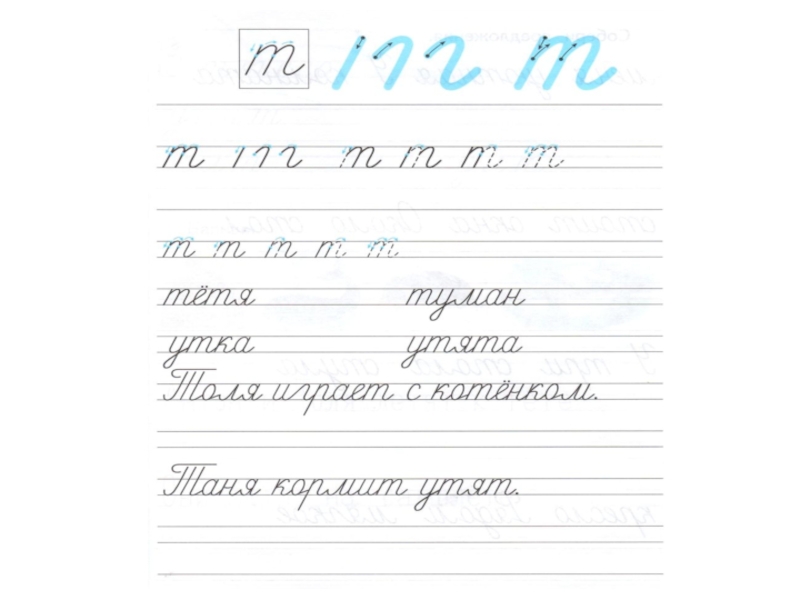 т т
т т т т т
т т т т т
тётя туман
утка утята
Толя играет с котёнком.
Таня кормит утят.